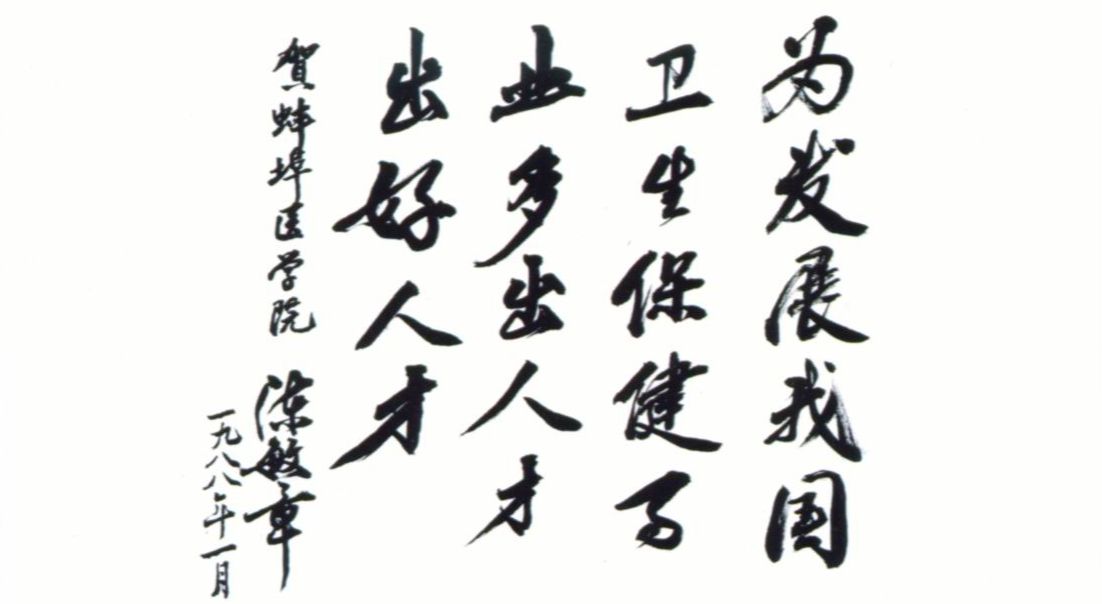 为发展我国
卫生保健事
业多出人才
出好人才
贺蚌埠医学院
陈敏章
一九八八年一月